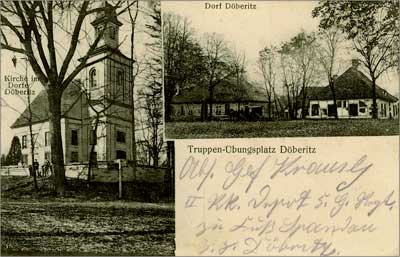 Dorf Döberitz
Kirche im
Dorfe
Döberitz
Truppen-Übungsplatz Döberitz
Abs. Gef.
II Kk. Depot 5. G.
zu Fuß Spandau
z. Z. Döberitz.